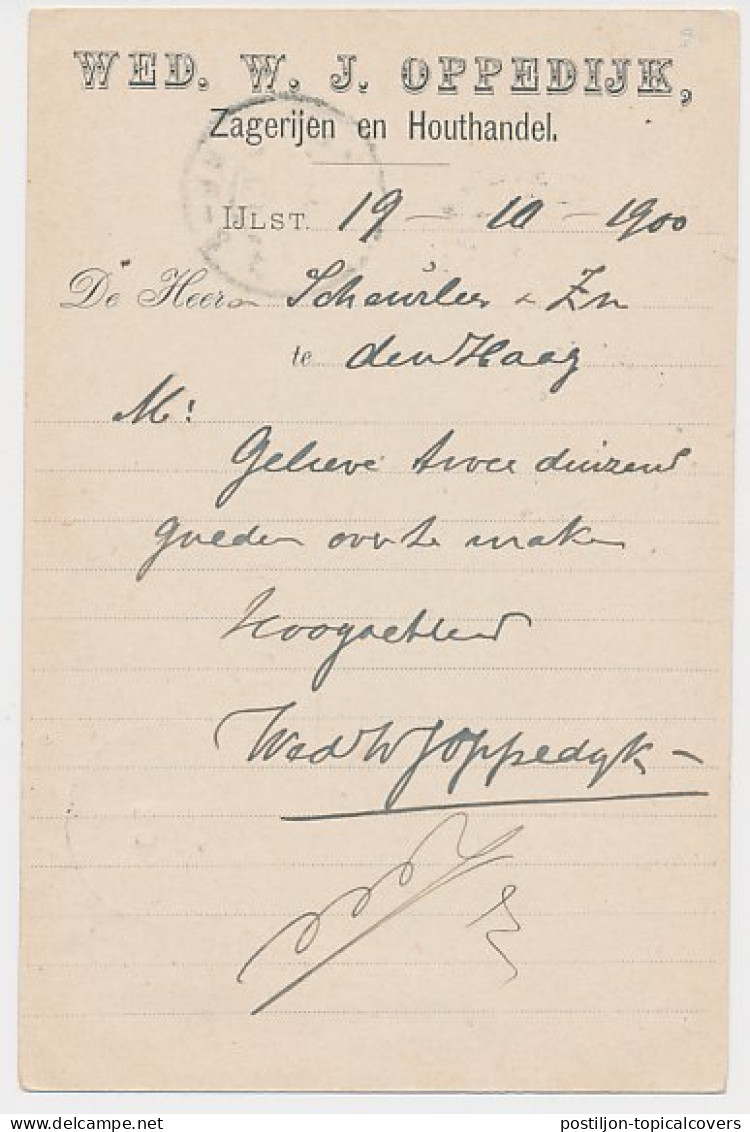 WED. W. J. OPPEDIJK,
Zagerijen en Houthandel.
IJLST. 19 – 10 – 1900
De Heeren Scheurleer & Zn
te den Haag
M!
Gelieve twee duizend
gulden over te maken
Hoogachtend
Wed W J Oppedijk
postiljon-topicalcovers
postiljon-topicalcovers